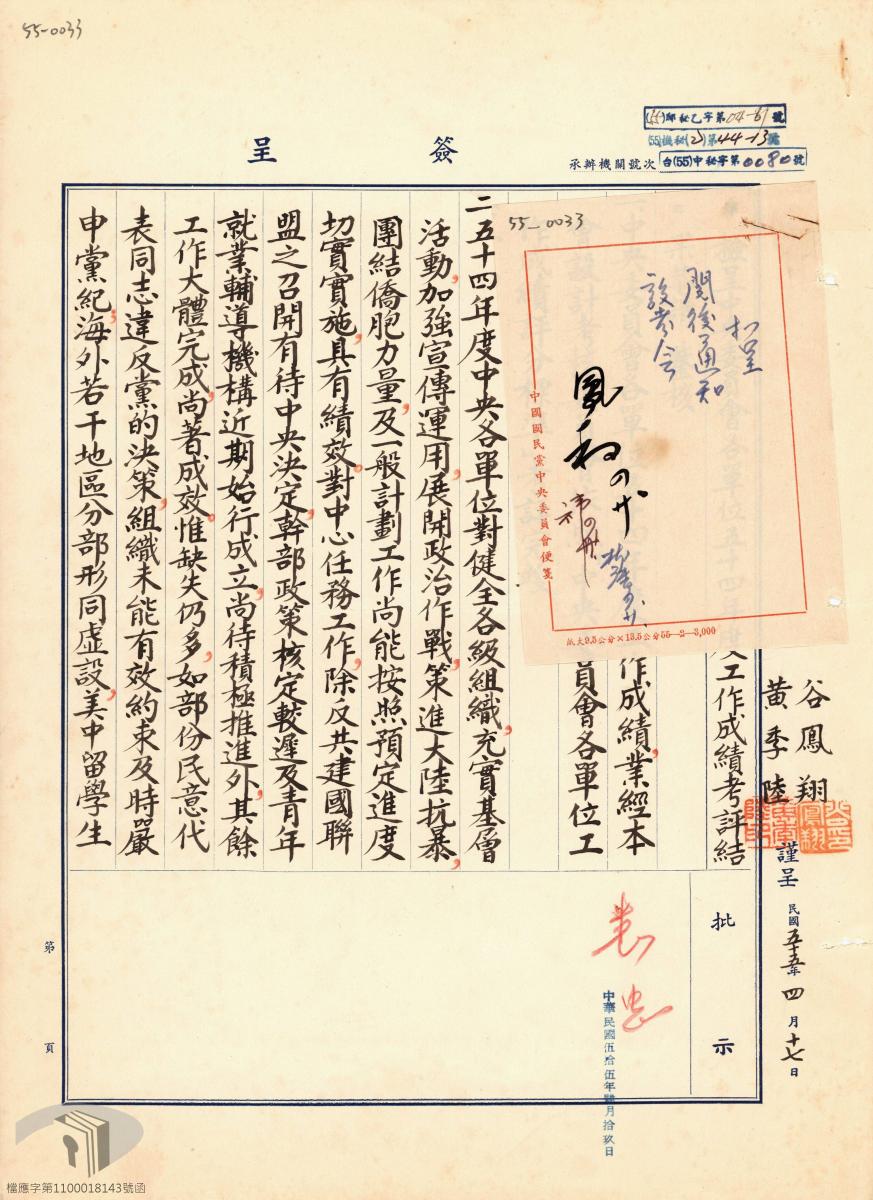 55-0033
簽呈
(55)郎秘乙字第04-61號
(55)機秘(乙)第44-13號
台(55)中秘字第0080號
承辦機關號次
谷鳳翔
黃季陸
謹呈
民國五十五年四月十七日
度工作成績考評結
作成績業經本
員會各單位工
二五十四年度中央各單位對健全各級組織,充實基層
活動,加強宣傳運用,展開政治作戰,策進大陸抗暴,
團結僑胞力量,及一般計劃工作尚能按照預定進度
切實實施,具有績效。對中心任務工作,除反共建國聯
盟之召開有待中央決定,幹部政策核定較遲及青年
就業輔導機構近期始行成立,尚待積極推進外,其餘
工作大體完成,尚著成效,惟缺失仍多,如部份民意代
表同志違反黨的決策,組織未能有效約束及時嚴
申黨紀,海外若干地區分部形同虛設,美中留學生
55-0033
扣呈
閱後通知
設考會
中國國民黨中央委員會便箋
紙大9.5公分×13.5公分55-2-3,000
批示
中華民國伍拾伍年肆月拾玖日
第 頁
檔應字第1100018143號函